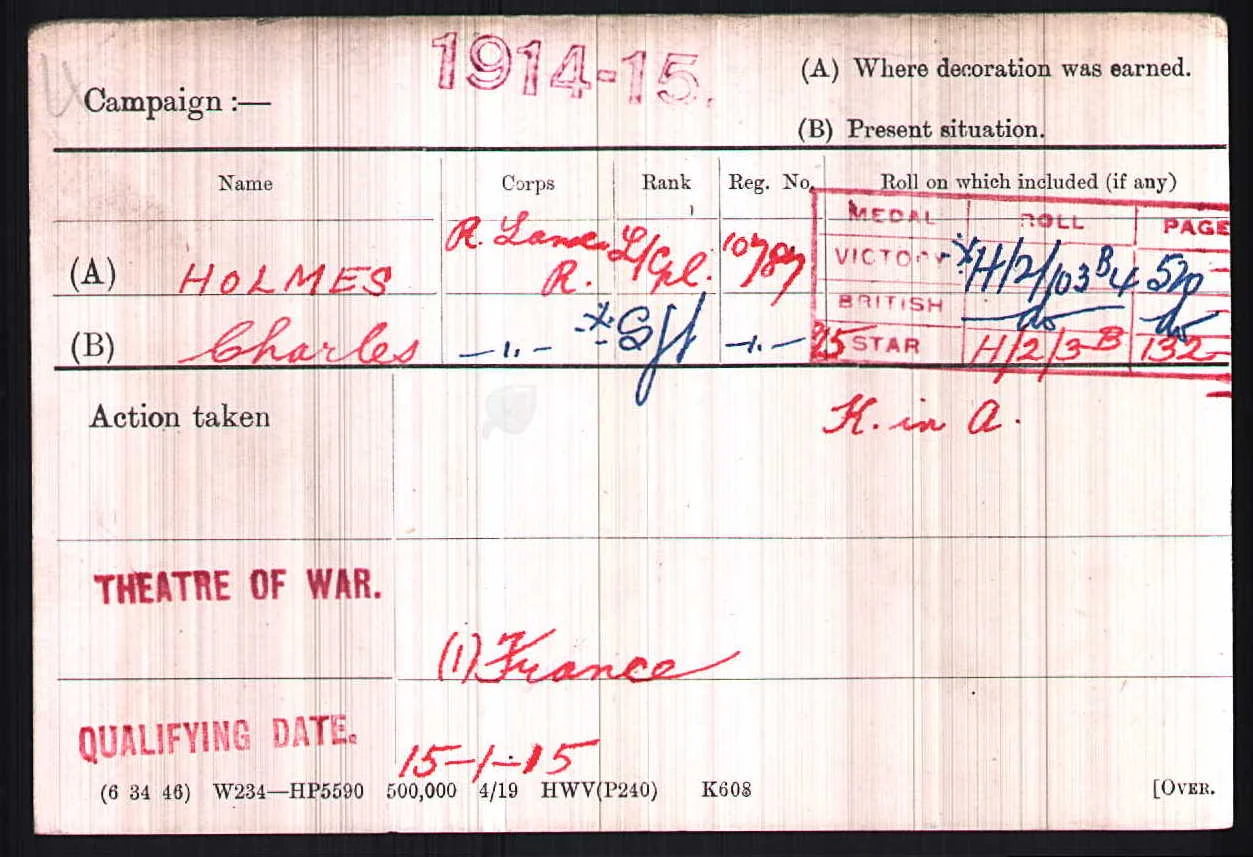 1914-15.
(A) Where decoration was earned.
Campaign :—
(B) Present situation.
Name Corps Rank Reg. No. Roll on which included (if any)
MEDAL ROLL PAGE
(A) HOLMES R. Lanc. R. L/Cpl. 10787 VICTORY *H/2/103 B4 520
BRITISH do do
(B) Charles —"— *Sjt —"— 15 STAR H/2/3 B 132
Action taken K. in A.
THEATRE OF WAR.
(1) France
QUALIFYING DATE.
15-1-15
(6 34 46) W234—HP5590 500,000 4/19 HWV(P240) K608 [OVER.